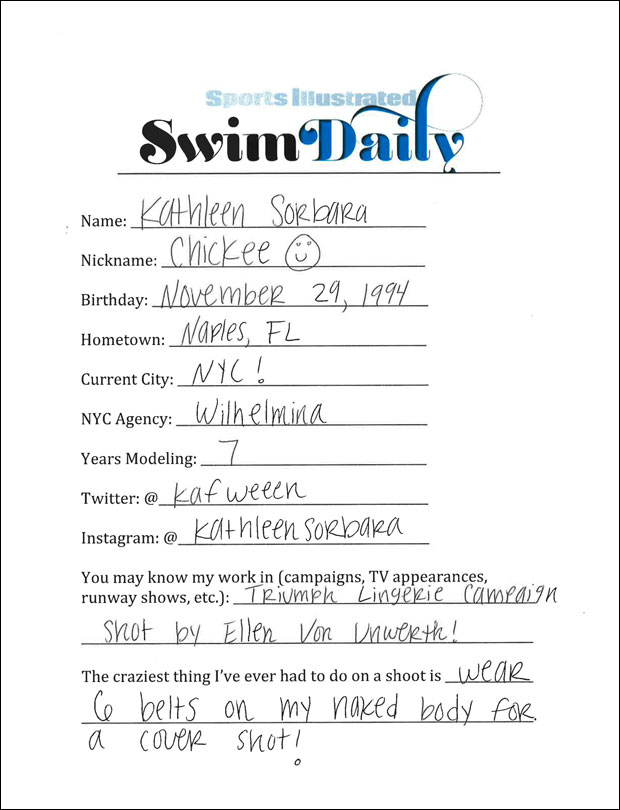 Sports Illustrated
Swim Daily
Name: Kathleen Sorbara
Nickname: Chickee
Birthday: November 29, 1994
Hometown: Naples, FL
Current City: NYC!
NYC Agency: Wilhelmina
Years Modeling: 7
Twitter: @ kafweeen
Instagram: @ kathleensorbara
You may know my work in (campaigns, TV appearances,
runway shows, etc.): Triumph Lingerie Campaign
shot by Ellen Von Unwerth!
The craziest thing I've ever had to do on a shoot is wear
6 belts on my naked body for
a cover shot!